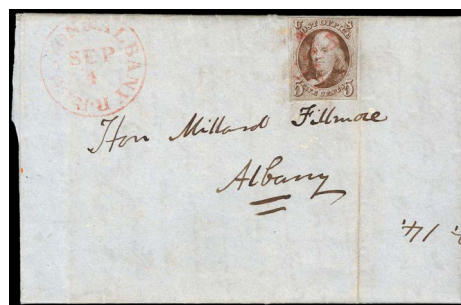 BOSTON & ALBANY R.R.
SEP
4
POST OFFICE
FIVE CENTS
5 5
Hon Millard Fillmore
Albany